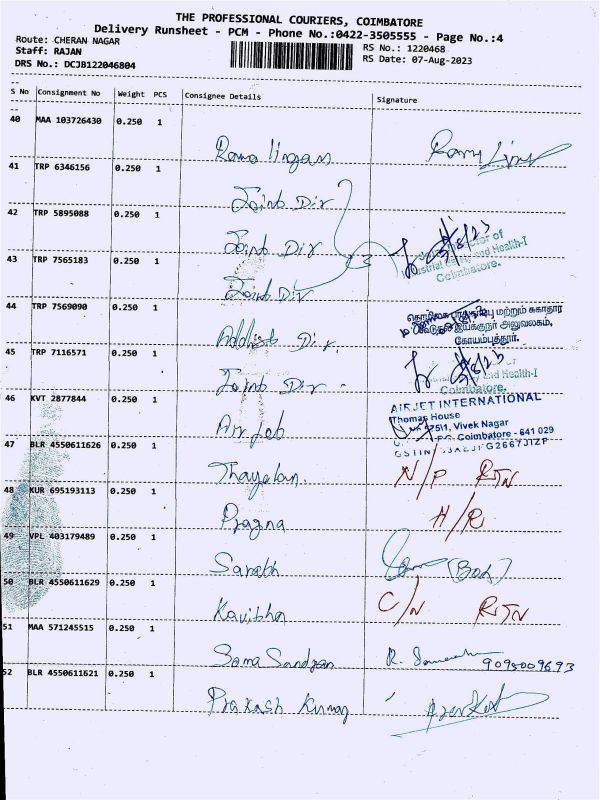 THE PROFESSIONAL COURIERS, COIMBATORE
Delivery Runsheet - PCM - Phone No.:0422-3505555 - Page No.:4
Route: CHERAN NAGAR
RS No.: 1220468
Staff: RAJAN
RS Date: 07-Aug-2023
DRS No.: DCJB122046804
S No Consignment No Weight PCS Consignee Details Signature
40 MAA 103726430 0.250 1
Rama lingam
41 TRP 6346156 0.250 1
Joint Dir
42 TRP 5895088 0.250 1
Joint Dir
43 TRP 7565183 0.250 1
Joint Dir
Health-I
Coimbatore.
44 TRP 7569090 0.250 1
Dir.
மற்றும் சுகாதார
அலுவலகம்,
கோயம்புத்தூர்.
45 TRP 7116571 0.250 1
Joint Dir
and Health-I
Coimbatore.
46 KVT 2877844 0.250 1
Air Jeb
AIRJET INTERNATIONAL
Thomas House
Vivek Nagar
Coimbatore - 641 029
47 BLR 4550611626 0.250 1
Thayalan
N/P RTN
48 KUR 695193113 0.250 1
Pragna
H/R
49 VPL 403179489 0.250 1
Sarabh
50 BLR 4550611629 0.250 1
Kavibha
C/N RTN
51 MAA 571245515 0.250 1
52 BLR 4550611621 0.250 1
Prakash Kumar